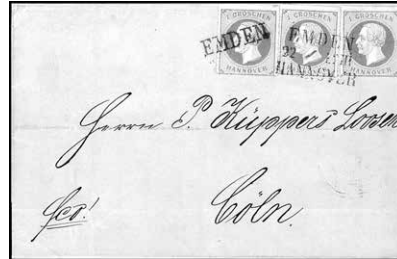 1 GROSCHEN 1 GROSCHEN 1 GROSCHEN
HANNOVER HANNOVER
EMDEN
EMDEN
HANNOVER
Herrn P. Küppers Loosen
fco!
Cöln.